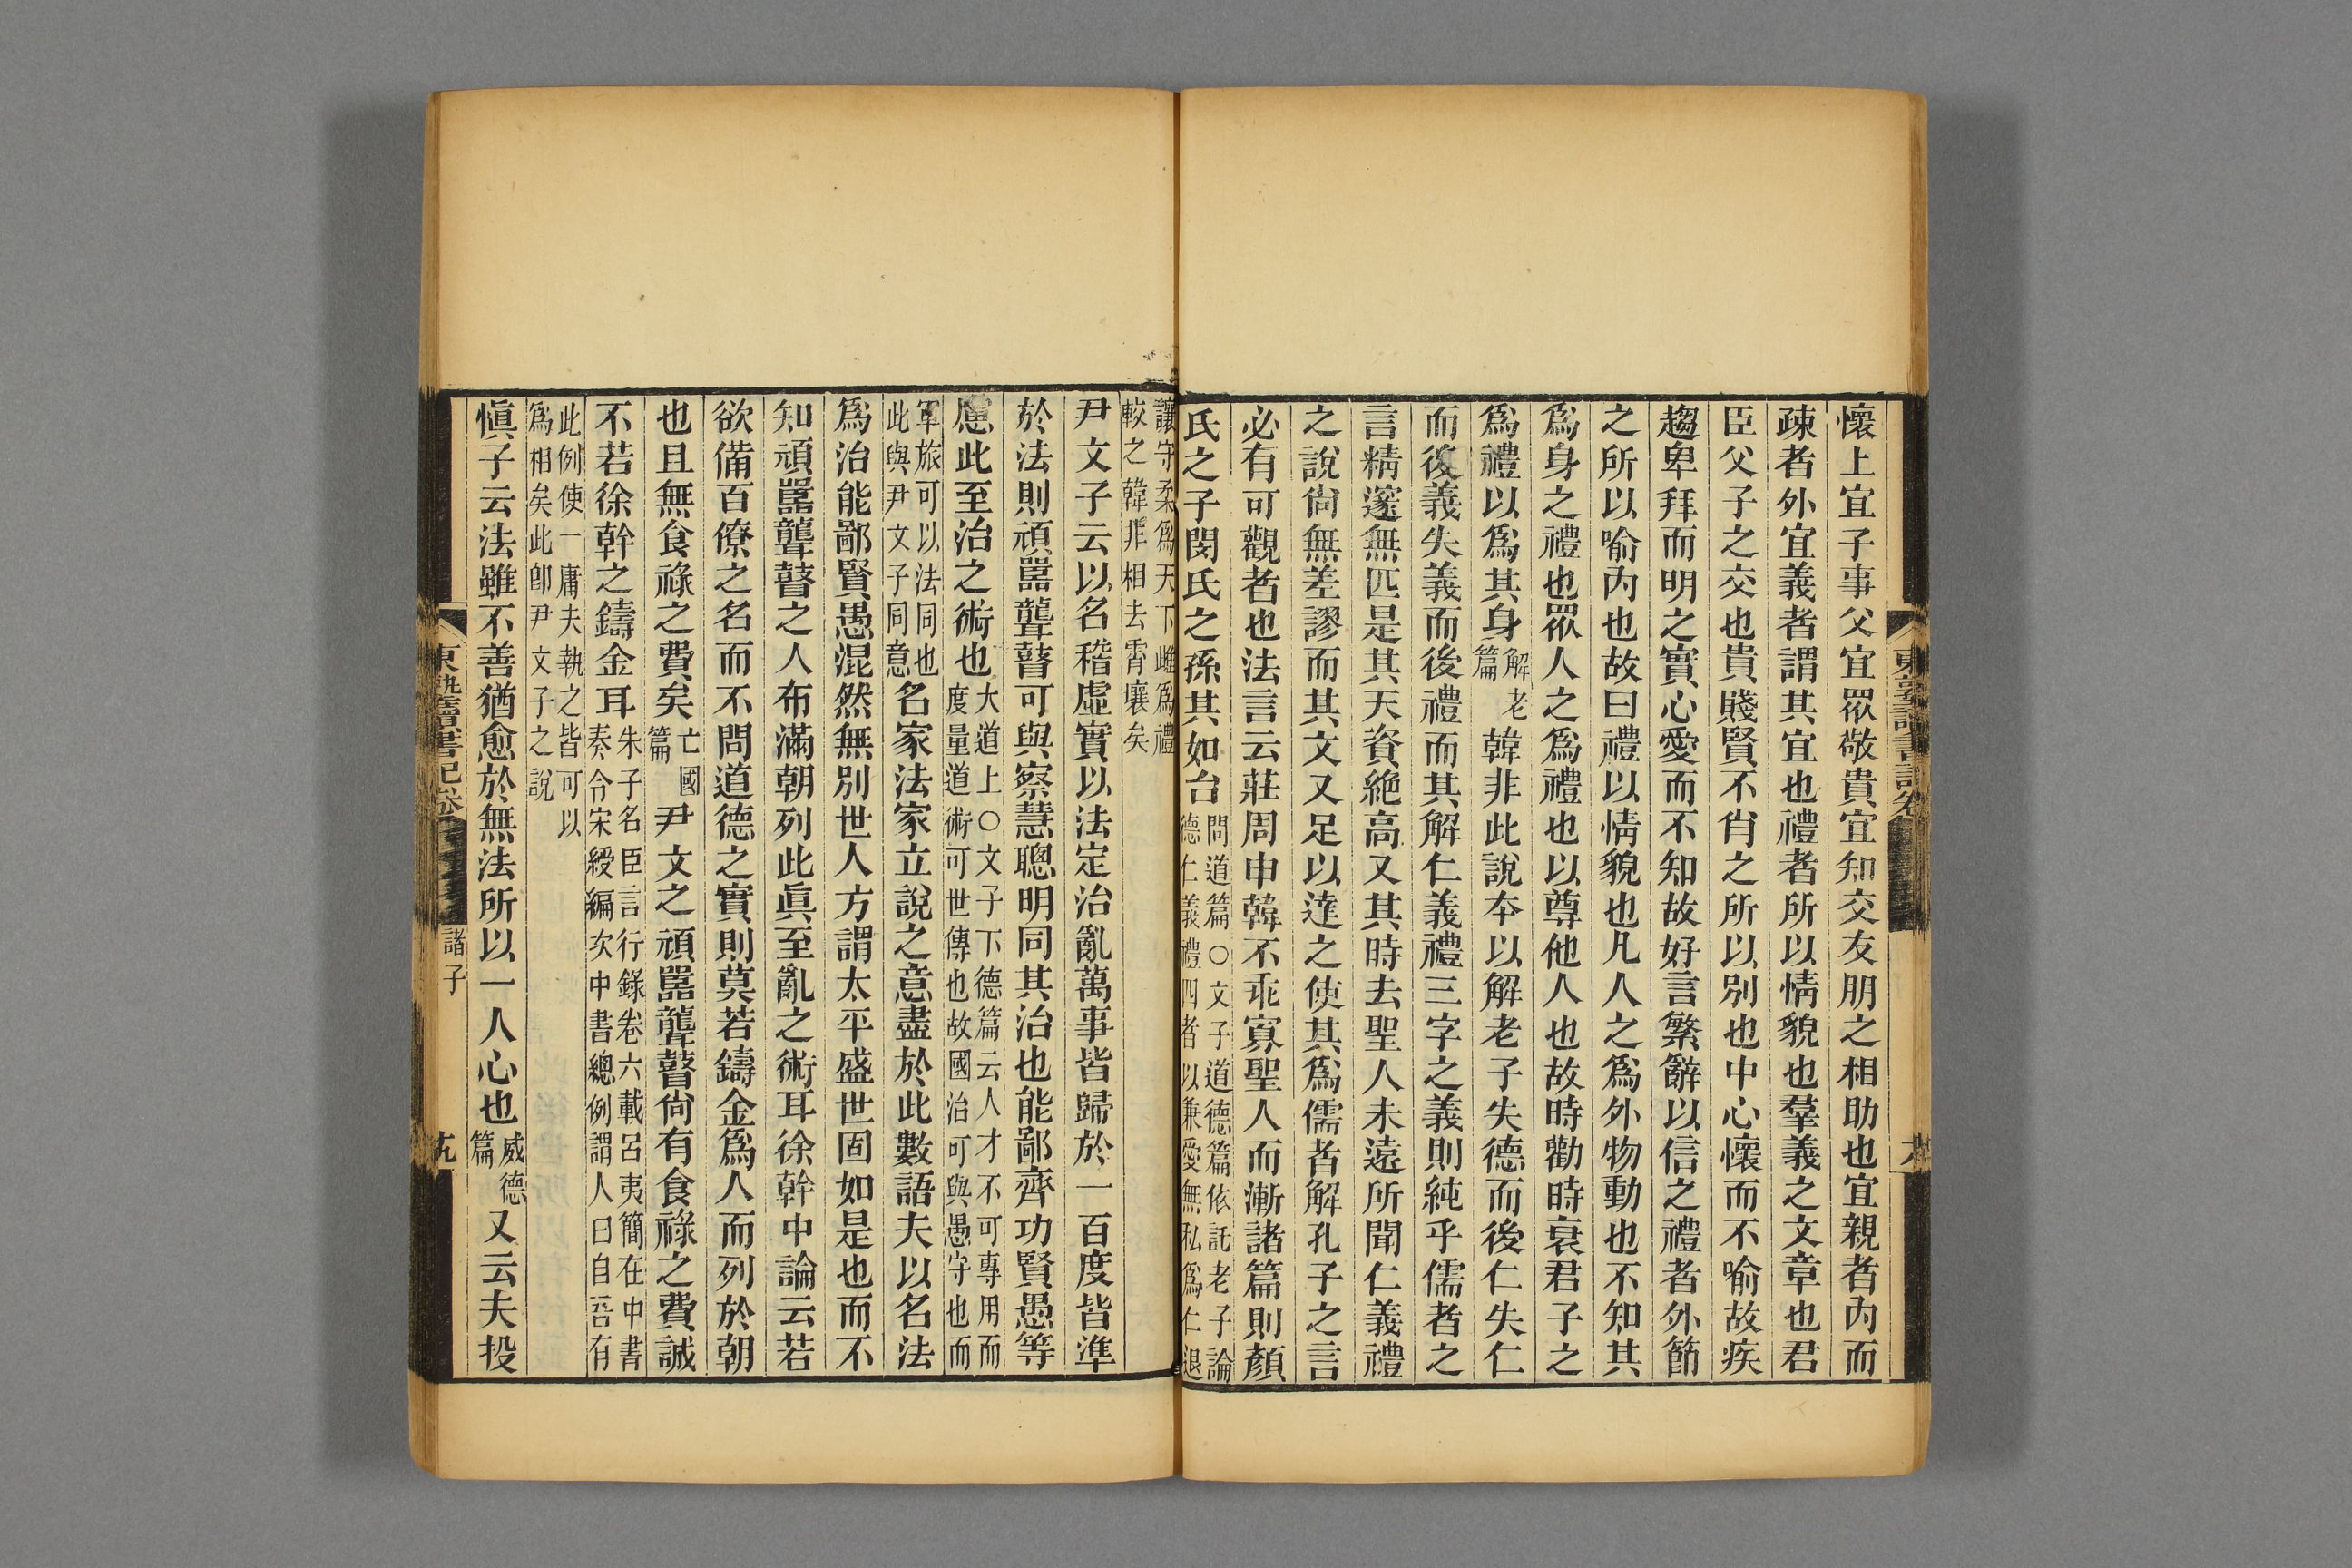 懷上宜子事父宜眾敬貴宜知交友朋之相助也宜親者內而
疎者外宜義者謂其宜也禮者所以情貌也羣義之文章也君
臣父子之交也貴賤賢不肖之所以別也中心懷而不喻故疾
趨卑拜而明之實心愛而不知故好言繁辭以信之禮者外節
之所以喻內也故曰禮以情貌也凡人之爲外物動也不知其
爲身之禮也眾人之爲禮也以尊他人也故時勸時衰君子之
爲禮以爲其身解老篇韓非此說本以解老子失德而後仁失仁
而後義失義而後禮而其解仁義禮三字之義則純乎儒者之
言精邃無匹是其天資絕高又其時去聖人未遠所聞仁義禮
之說尙無差謬而其文又足以達之使其爲儒者解孔子之言
必有可觀者也法言云莊周申韓不乖寡聖人而漸諸篇則顏
氏之子閔氏之孫其如台問道篇○文子道德篇依託老子論德仁義禮四者以兼愛無私爲仁退
讓守柔爲天下雌爲禮較之韓非相去霄壤矣
尹文子云以名稽虛實以法定治亂萬事皆歸於一百度皆準
於法則頑嚚聾瞽可與察慧聰明同其治也能鄙齊功賢愚等
慮此至治之術也大道上○文子下德篇云人才不可專用而度量道術可世傳也故國治可與愚守也而
軍旅可以法同也此與尹文子同意名家法家立說之意盡於此數語夫以名法
爲治能鄙賢愚混然無別世人方謂太平盛世固如是也而不
知頑嚚聾瞽之人布滿朝列此眞至亂之術耳徐幹中論云若
欲備百僚之名而不問道德之實則莫若鑄金爲人而列於朝
也且無食祿之費矣亡國篇尹文之頑嚚聾瞽尙有食祿之費誠
不若徐幹之鑄金耳朱子名臣言行錄卷六載呂夷簡在中書奏令宋綬編次中書總例謂人曰自吾有
此例使一庸夫執之皆可以爲相矣此卽尹文子之說
愼子云法雖不善猶愈於無法所以一人心也威德篇又云夫投
諸子